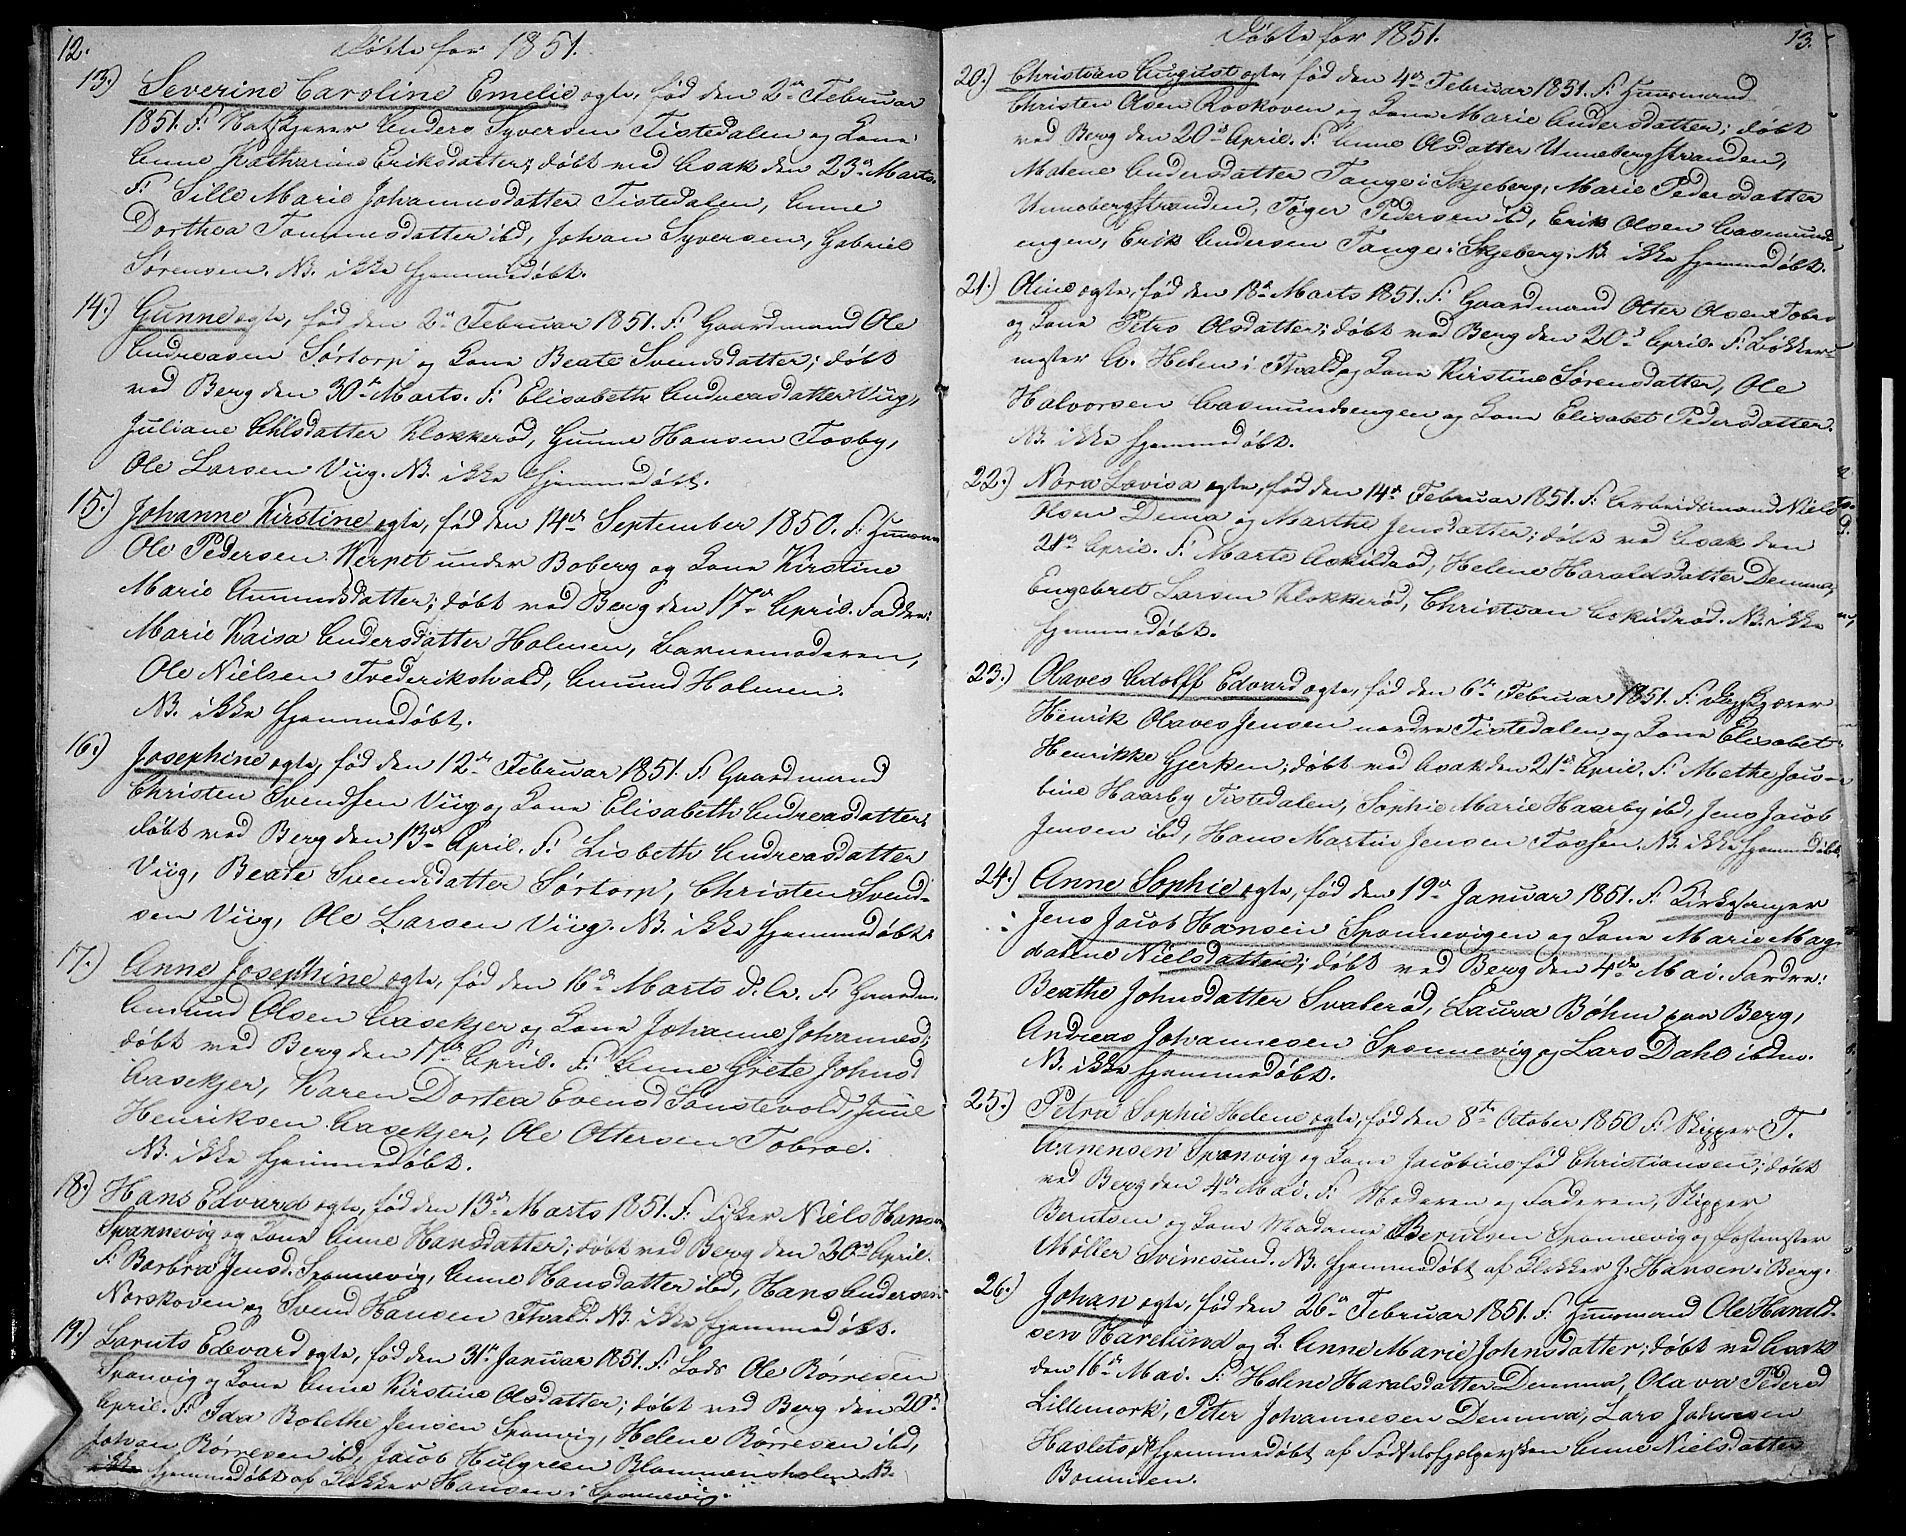 12.
Døbte for 1851.
13.) Severine Caroline Emelie ægte, fød den 2den Februar
1851. F: Anders Syversen Tistedalen og Kone
Anne Katharine Eriksdatter; døbt ved Asak den 23de Marts.
F: Sille Marie Johannesdatter Tistedalen, Anne
Dorthea Tommesdatter ibd, Johan Syversen, Gabriel
Sørensen. NB. ikke hjemmedøbt.
14.) Gunne ægte, fød den 2den Februar 1851. F: Gaardmand Ole
Andreasen Sørtorp og Kone Beate Svendsdatter; døbt
ved Berg den 30te Marts. F: Elisabeth Andreasdatter Viig,
Juliane Ohlsdatter Klokkerød, Gunne Hansen Tosby,
Ole Larsen Viig. NB. ikke hjemmedøbt.
15.) Johanne Kirstine ægte, fød den 14de September 1850. F: Huusm
Ole Pedersen Werpet under Boberg og Kone Kirstine
Marie Amundsdatter; døbt ved Berg den 17de April. Faddre:
Marie Kaisa Andersdatter Holmen, Barnemoderen,
Ole Nielsen Frederikshald, Amund Holmen.
NB. ikke hjemmedøbt.
16.) Josephine ægte, fød den 12te Februar 1851. F: Gaardmand
Christen Svendsen Viig og Kone Elisabeth Andreasdatter;
døbt ved Berg den 13de April. F: Lisbeth Andreasdatter
Viig, Beate Svendsdatter Sørtorp, Christen Svend-
sen Viig, Ole Larsen Viig. NB. ikke hjemmedøbt.
17.) Anne Josephine ægte, fød den 16de Marts d. A. F: Gaardm.
Amund Olsen Aasekjer og Kone Johanne Johannesd;
døbt ved Berg den 17de April. F: Anne Grete Johnsd
Aasekjer, Karen Dortea Evensd Sonstevold,
Henriksen Aasekjer, Ole Ottersen Tobroe.
NB. ikke hjemmedøbt.
18.) Hans Edvard ægte, fød den 13de Marts 1851. F: Fisker Niels Hansen
Sponnevig og Kone Anne Hansdatter; døbt ved Berg den 20de April.
F: Barbra Jensd. Sponnevig, Anne Hansdatter ibd, Hans Andersen
Norskoven og Svend Hansen Fhald. NB. ikke hjemmedøbt.
19.) Laruts Edevard ægte, fød den 31te Januar 1851. F: Lods Ole Børresen
Sponvig og Kone Anne Kirstine Olsdatter; døbt ved Berg den 20de
April. F: Ida Bolethe Jensen Sponvig, Helene Børresen ibd,
Johan Børresen ibd, Jacob Hulgreen Blommensholm. NB.
hjemmedøbt af Klokker Hansen i Sponnevig.
13.
Døbte for 1851.
20.) Christian August ægte, fød den 4de Februar 1851. F: Huusmand
Christen Olsen Roskoven og Kone Marie Andersdatter; døbt
ved Berg den 20de April. F: Anne Olsdatter Unnebergstranden,
Malene Andersdatter Tange i Skjeberg, Marie Pedersdatter
Unnebergstranden, Toger Pedersen ibd, Erik Olsen Aasmunds
engen, Erik Andersen Tange i Skjeberg. NB. ikke hjemmedøbt.
21.) Oline ægte, fød den 18de Marts 1851. F: Gaardmand Otter Olsen Tobro
og Kone Petro Olsdatter; døbt ved Berg den 20de April. F: Løkker-
mester A. Helen i Fhald og Kone Kirstine Sørensdatter, Ole
Halvorsen Aasmundsengen og Kone Elisabet Pedersdatter.
NB. ikke hjemmedøbt.
22.) Nora Lovisa ægte, fød den 14de Februar 1851. F: Arbeidsmand Niels
Olsen Dema og Marthe Jensdatter; døbt ved Asak den
21de April. F: Marte Askildrød, Helene Haraldsdatter Demma,
Engebret Larsen Klokkerød, Christian Askildrød. NB. ikke
hjemmedøbt.
23.) Olaves Adolff Edvard ægte, fød den 6te Februar 1851. F:
Henrik Olaves Jensen nordre Tistedalen og Kone Elisabet
Henrikke Gjerken; døbt ved Asak den 21de April. F: Methe Jac-
bine Haarby Tistedalen, Sophie Marie Haarby ibd, Jens Jacob
Jensen ibd, Hans Martin Jensen Tossen. NB. ikke hjemmedøbt.
24.) Anne Sophie ægte, fød den 19de Januar 1851. F: Kirkesanger
Jens Jacob Hansen Sponnevigen og Kone Marie Mag-
dalene Nielsdatter; døbt ved Berg den 4de Mai. Faddre:
Beathe Johnsdatter Svalerød, Laura Bøhm paa Berg,
Andreas Johannesen Sponnevig og Lars Dahl ibdm.
NB. ikke hjemmedøbt.
25.) Petra Sophie Helene ægte, fød den 8de October 1850 F: Skipper T.
Aanensen Sponvig og Kone Jacobine fød Christiansen; døbt
ved Berg den 4de Mai. F: Moderen og Faderen, Skipper
Berntsen og Kone Madame Berntsen Sponnevig og Postmester
Møller Svinesund. NB. hjemmedøbt af Klokker J. Hansen i Berg.
26.) Johan ægte, fød den 26de Februar 1851. F: Huusmand Ole Harald-
sen Harelund og K. Anne Marie Johnsdatter; døbt ved Asak
den 16de Mai. F: Helene Haralsdatter Demma, Olava Pedersd
Lillemork, Peter Johannesen Demma, Lars Johnsen
hjemmedøbt af Anne Nielsdatter